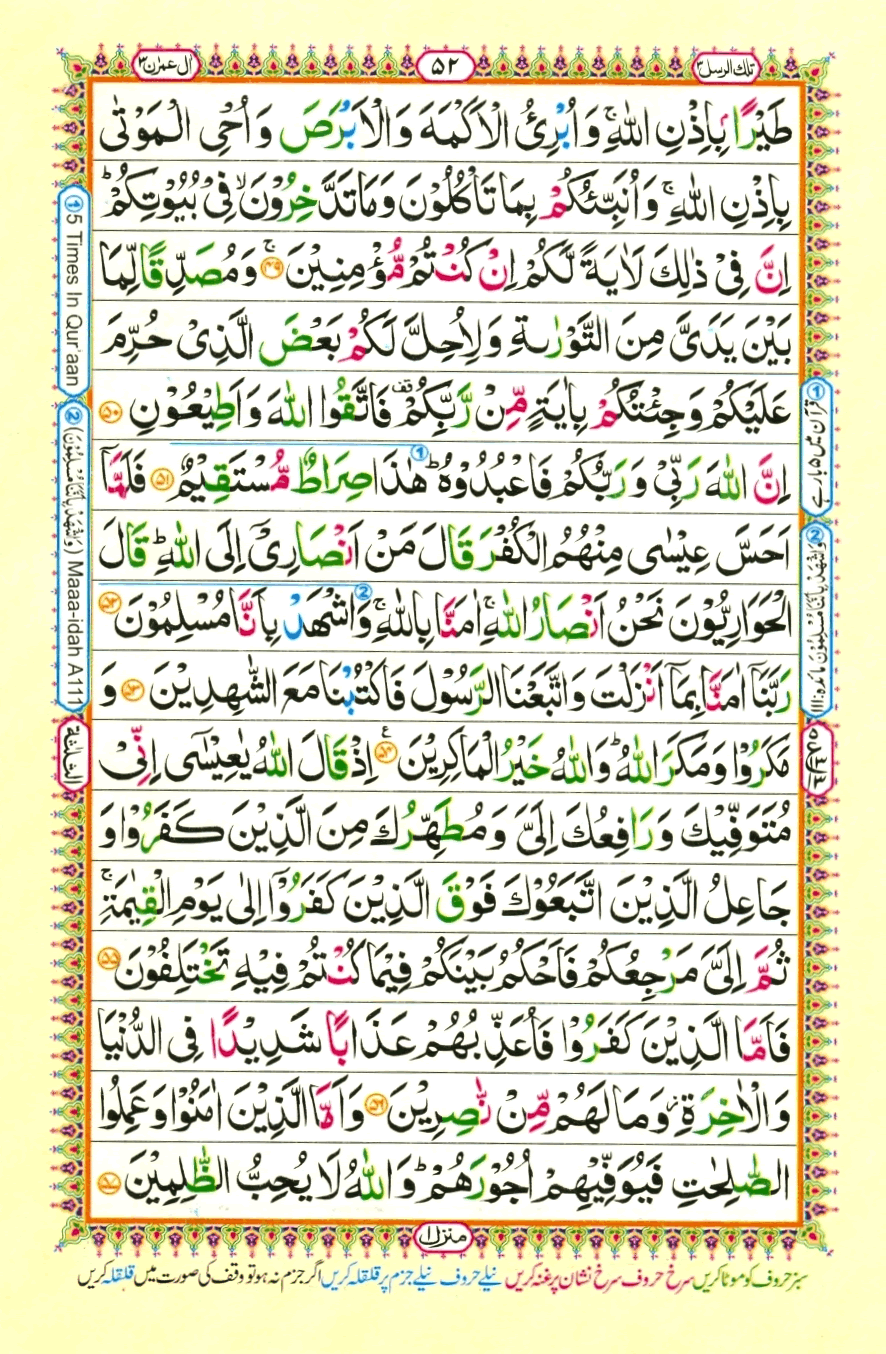 تلك الرسل ٣
٥٢
اٰل عمرٰن ٣
طَيْرًاۢ بِاِذْنِ اللّٰهِ ۚ وَاُبْرِئُ الْاَكْمَهَ وَالْاَبْرَصَ وَاُحْيِ الْمَوْتٰى
بِاِذْنِ اللّٰهِ ۚ وَاُنَبِّئُكُمْ بِمَا تَاْكُلُوْنَ وَمَا تَدَّخِرُوْنَ ۙ فِيْ بُيُوْتِكُمْ ؕ
اِنَّ فِيْ ذٰلِكَ لَاٰيَةً لَّكُمْ اِنْ كُنْتُمْ مُّؤْمِنِيْنَ ۚ ﴿۴۹﴾ وَمُصَدِّقًا لِّمَا
بَيْنَ يَدَيَّ مِنَ التَّوْرٰىةِ وَلِاُحِلَّ لَكُمْ بَعْضَ الَّذِيْ حُرِّمَ
عَلَيْكُمْ وَجِئْتُكُمْ بِاٰيَةٍ مِّنْ رَّبِّكُمْ قف فَاتَّقُوا اللّٰهَ وَاَطِيْعُوْنِ ﴿۵۰﴾
اِنَّ اللّٰهَ رَبِّيْ وَرَبُّكُمْ فَاعْبُدُوْهُ ؕ ① هٰذَا صِرَاطٌ مُّسْتَقِيْمٌ ﴿۵۱﴾ فَلَمَّاۤ
اَحَسَّ عِيْسٰى مِنْهُمُ الْكُفْرَ قَالَ مَنْ اَنْصَارِيْۤ اِلَى اللّٰهِ ؕ قَالَ
الْحَوَارِيُّوْنَ نَحْنُ اَنْصَارُ اللّٰهِ ۚ اٰمَنَّا بِاللّٰهِ ۚ ② وَاشْهَدْ بِاَنَّا مُسْلِمُوْنَ ﴿۵۲﴾
رَبَّنَاۤ اٰمَنَّا بِمَاۤ اَنْزَلْتَ وَاتَّبَعْنَا الرَّسُوْلَ فَاكْتُبْنَا مَعَ الشّٰهِدِيْنَ ﴿۵۳﴾ وَ
مَكَرُوْا وَمَكَرَ اللّٰهُ ؕ وَاللّٰهُ خَيْرُ الْمَاكِرِيْنَ ﴿۵۴﴾ ع اِذْ قَالَ اللّٰهُ يٰعِيْسٰۤى اِنِّيْ
مُتَوَفِّيْكَ وَرَافِعُكَ اِلَيَّ وَمُطَهِّرُكَ مِنَ الَّذِيْنَ كَفَرُوْا وَ
جَاعِلُ الَّذِيْنَ اتَّبَعُوْكَ فَوْقَ الَّذِيْنَ كَفَرُوْۤا اِلٰى يَوْمِ الْقِيٰمَةِ ۚ
ثُمَّ اِلَيَّ مَرْجِعُكُمْ فَاَحْكُمُ بَيْنَكُمْ فِيْمَا كُنْتُمْ فِيْهِ تَخْتَلِفُوْنَ ﴿۵۵﴾
فَاَمَّا الَّذِيْنَ كَفَرُوْا فَاُعَذِّبُهُمْ عَذَابًا شَدِيْدًا فِي الدُّنْيَا
وَالْاٰخِرَةِ ؗ وَمَا لَهُمْ مِّنْ نّٰصِرِيْنَ ﴿۵۶﴾ وَاَمَّا الَّذِيْنَ اٰمَنُوْا وَعَمِلُوا
الصّٰلِحٰتِ فَيُوَفِّيْهِمْ اُجُوْرَهُمْ ؕ وَاللّٰهُ لَا يُحِبُّ الظّٰلِمِيْنَ ﴿۵۷﴾
① قرآن میں ۵ بار ہے
② وَاشْهَدْ بِاَنَّنَا مُسْلِمُوْنَ مائدہ:۱۱۱
ع ۵ ۱۳ ۱۳
① 5 Times In Qur'aan
② (وَاشْهَدْ بِاَنَّنَا مُسْلِمُوْنَ) Maaa-idah A111
الثلثة
منزل ۱
سبز حروف کو موٹا کریں سرخ حروف سرخ نشان پر غنہ کریں نیلے حروف نیلے جزم پر قلقلہ کریں اگر جزم نہ ہو تو وقف کی صورت میں قلقلہ کریں